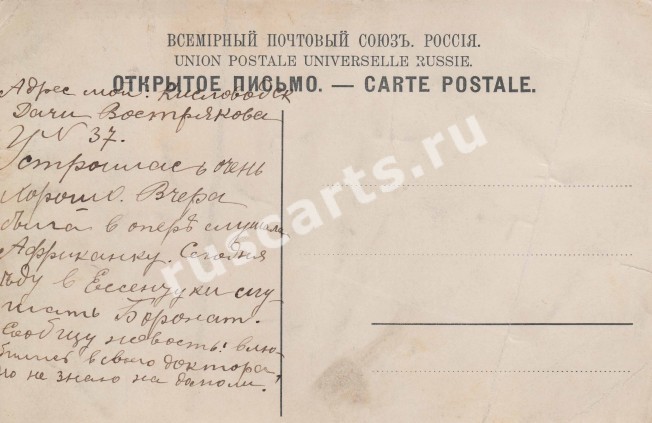 ВСЕМІРНЫЙ ПОЧТОВЫЙ СОЮЗЪ. РОССІЯ.
UNION POSTALE UNIVERSELLE RUSSIE.
ОТКРЫТОЕ ПИСЬМО. — CARTE POSTALE.
Адрес мой: Кисловодск
Дачи Вострякова
№ 37.
Устроилась очень
хорошо. Вчера
была в оперѣ слушала
Африканку. Сегодня
ѣду в Ессентуки слу-
шать Боронат.
Сообщу новость: влю-
билась в своего доктора
не знаю на долго ли!
ruscarts.ru